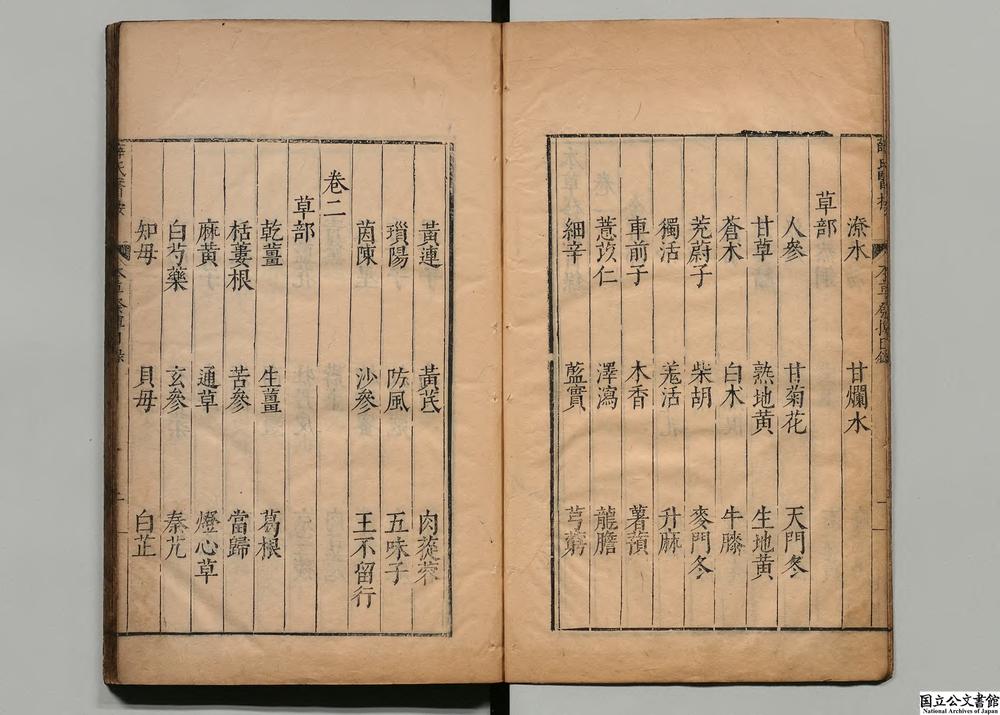 潦水 甘爛水
草部
人參 甘菊花 天門冬
甘草 熟地黄 生地黄
蒼木 白木 牛膝
茺蔚子 柴胡 麥門冬
獨活 羗活 升麻
車前子 木香 薯蕷
薏苡仁 澤瀉 龍膽
細辛 藍實 芎藭
黃連 黃芪 肉蓯蓉
瑣陽 防風 五味子
茵陳 沙參 王不留行
卷二
草部
乾薑 生薑 葛根
栝蔞根 苦參 當歸
麻黃 通草 燈心草
白芍藥 玄參 秦艽
知母 貝母 白芷
国立公文書館
National Archives of Japan